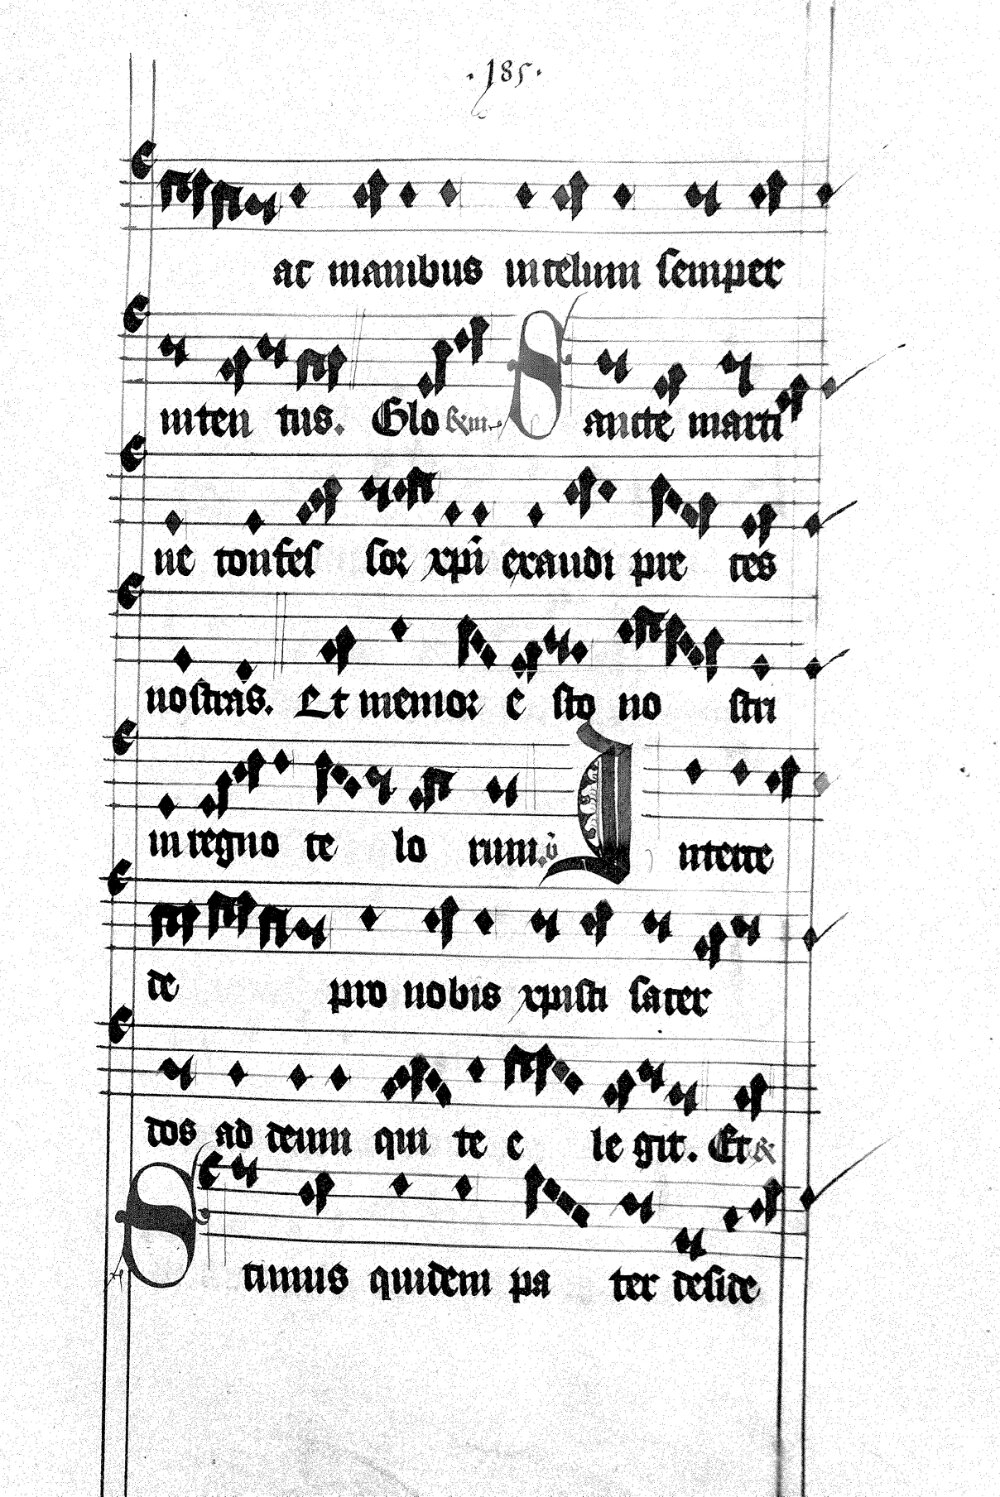 ·185·
ac manibus in celum semper
inten tus. Glo &in S ancte marti
ne confes sor xpi exaudi pre ces
nostras. Et memor e sto no stri
in regno ce lo rum. I ntercé
de pro nobis xpisti sacer
dos ad deum qui te e le git. Et &
S cimus quidem pa ter deside